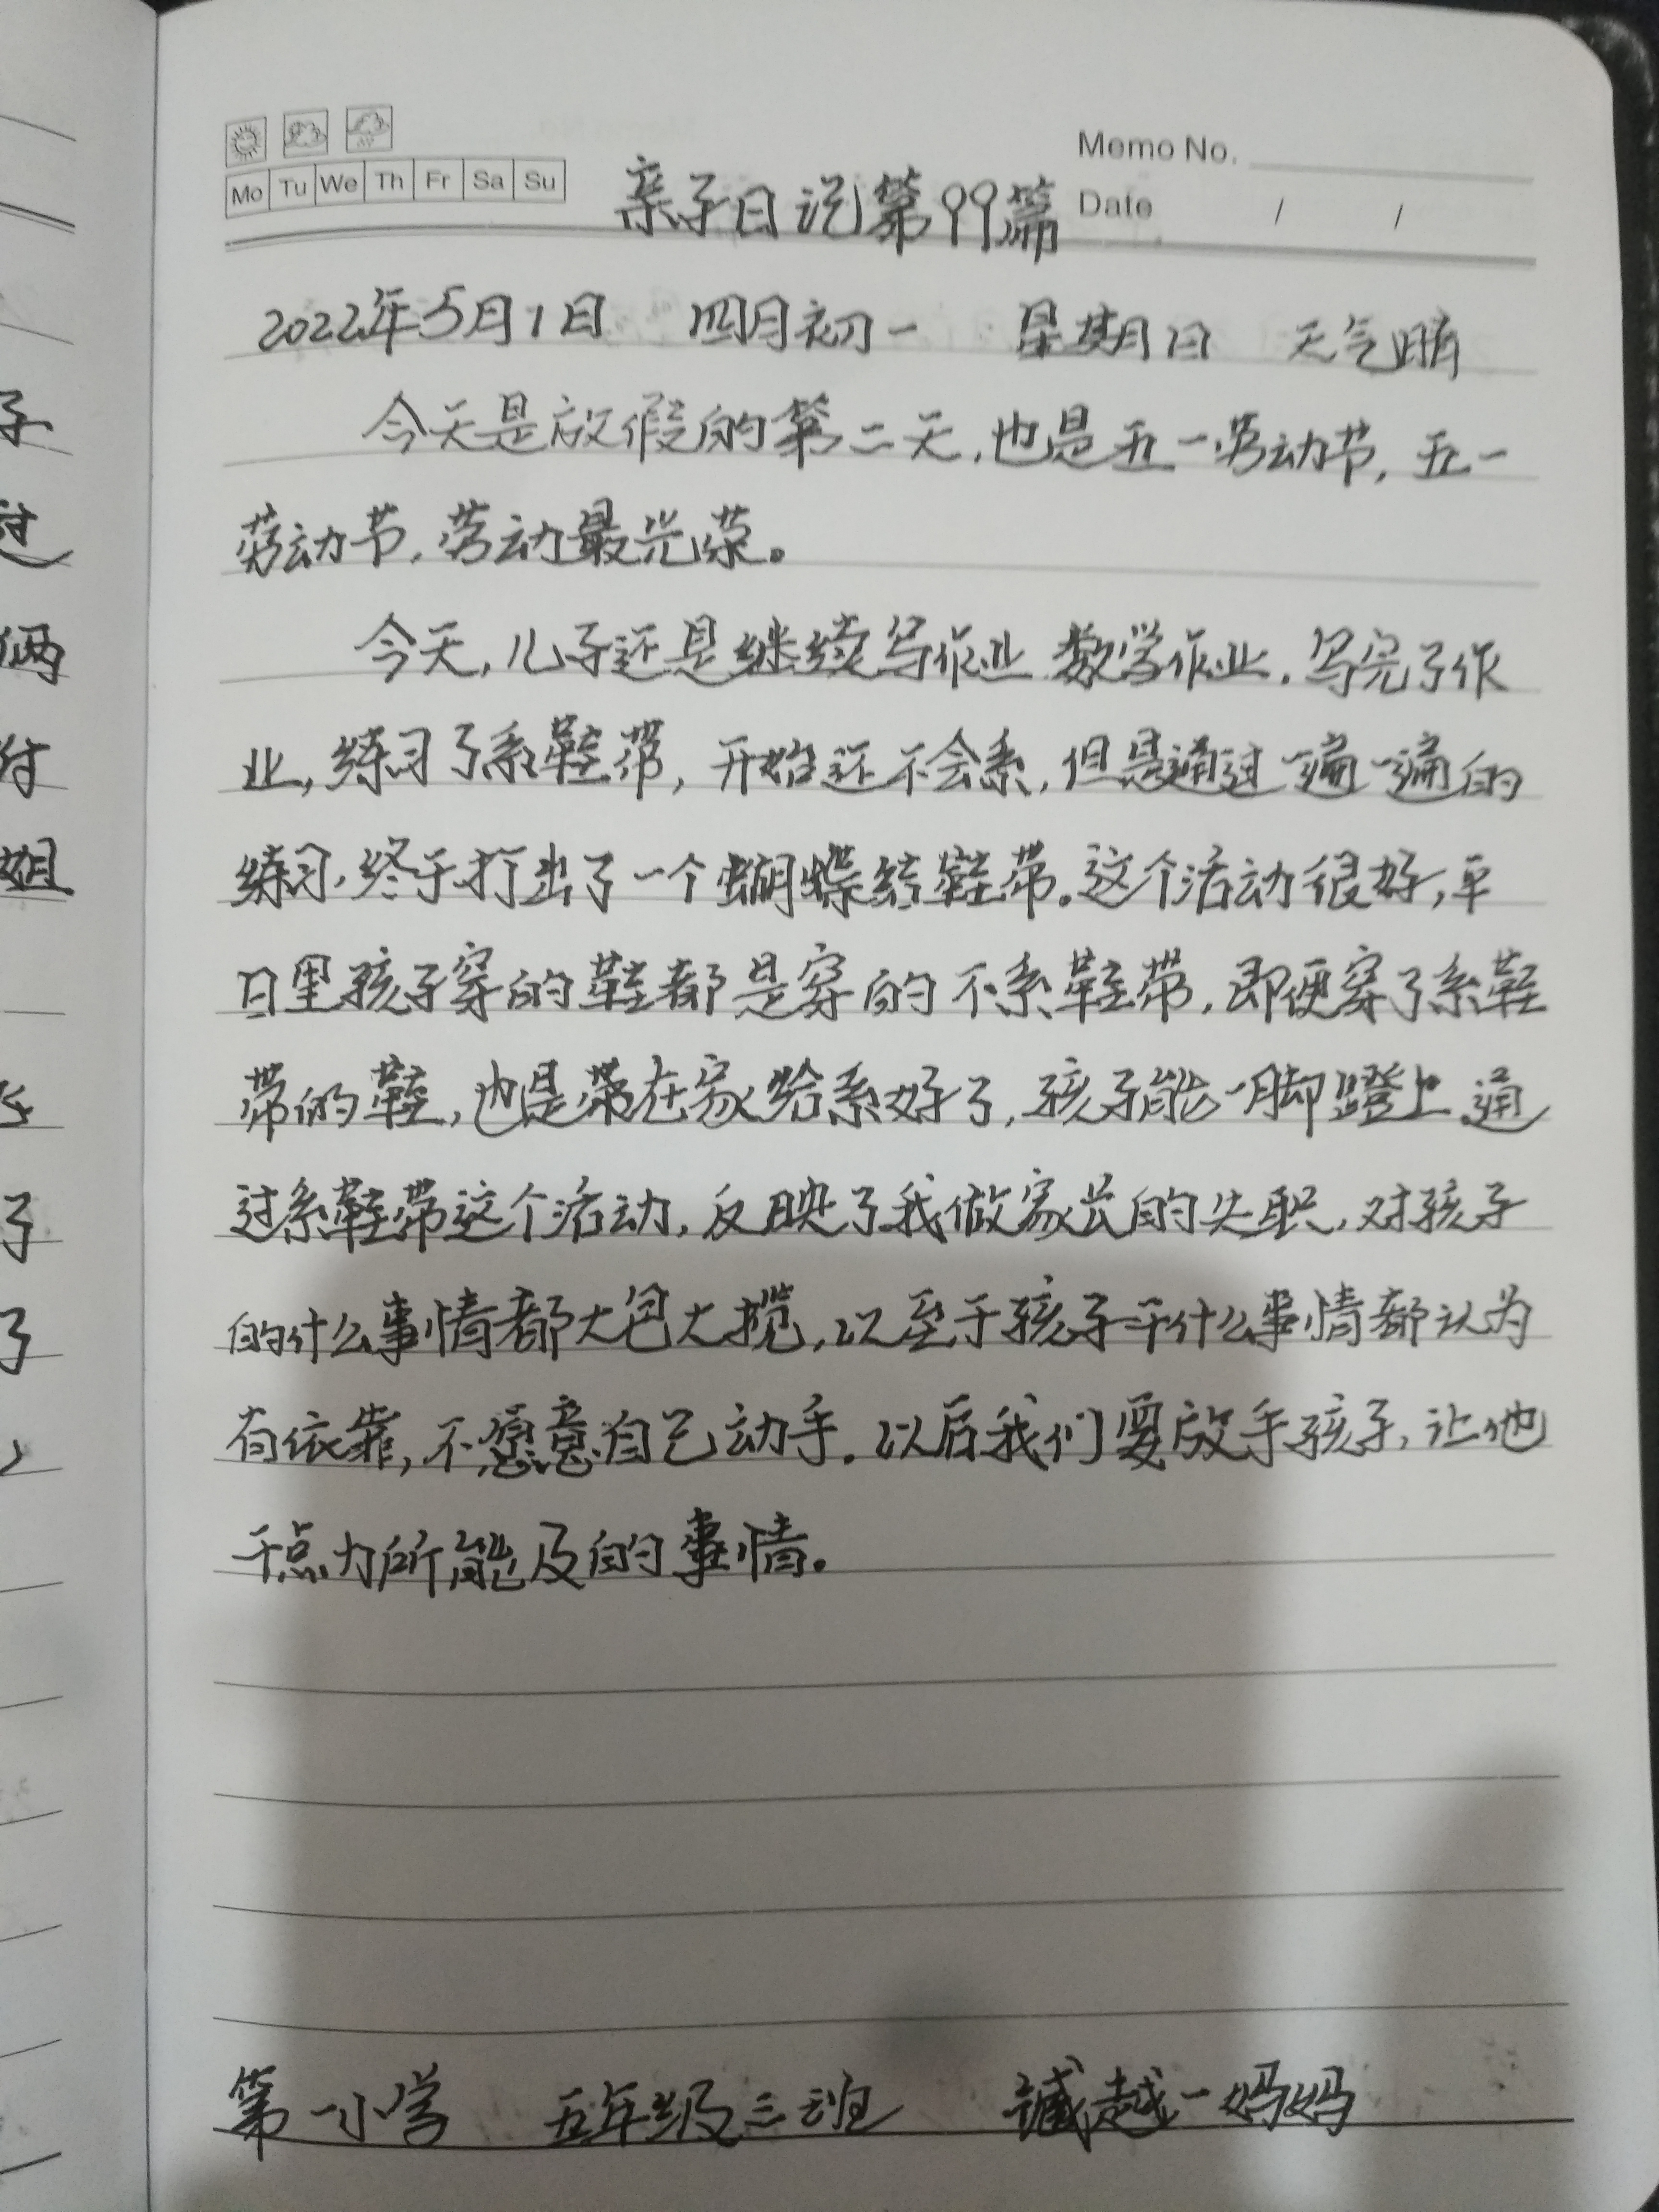 Memo No.
Mo Tu We Th Fr Sa Su
亲子日记第99篇
Date / /
2022年5月1日 四月初一 星期日 天气晴
今天是放假的第二天,也是五一劳动节,五一
劳动节,劳动最光荣。
今天,儿子还是继续写作业 数学作业.写完了作
业,练习了系鞋带,开始还不会系,但是通过一遍一遍的
练习,终于打出了一个蝴蝶结鞋带。这个活动很好,平
日里孩子穿的鞋都是穿的不系鞋带,即便穿了系鞋
带的鞋,也是带在家给系好了,孩子能一脚蹬上.通
过系鞋带这个活动,反映了我做家长的失职,对孩子
的什么事情都大包大揽,以至于孩子干什么事情都认为
有依靠,不愿意自己动手.以后我们要放手孩子,让他
干点力所能及的事情。
第一小学 五年级三班 越一妈妈
子
过
俩
付
姐
了
了